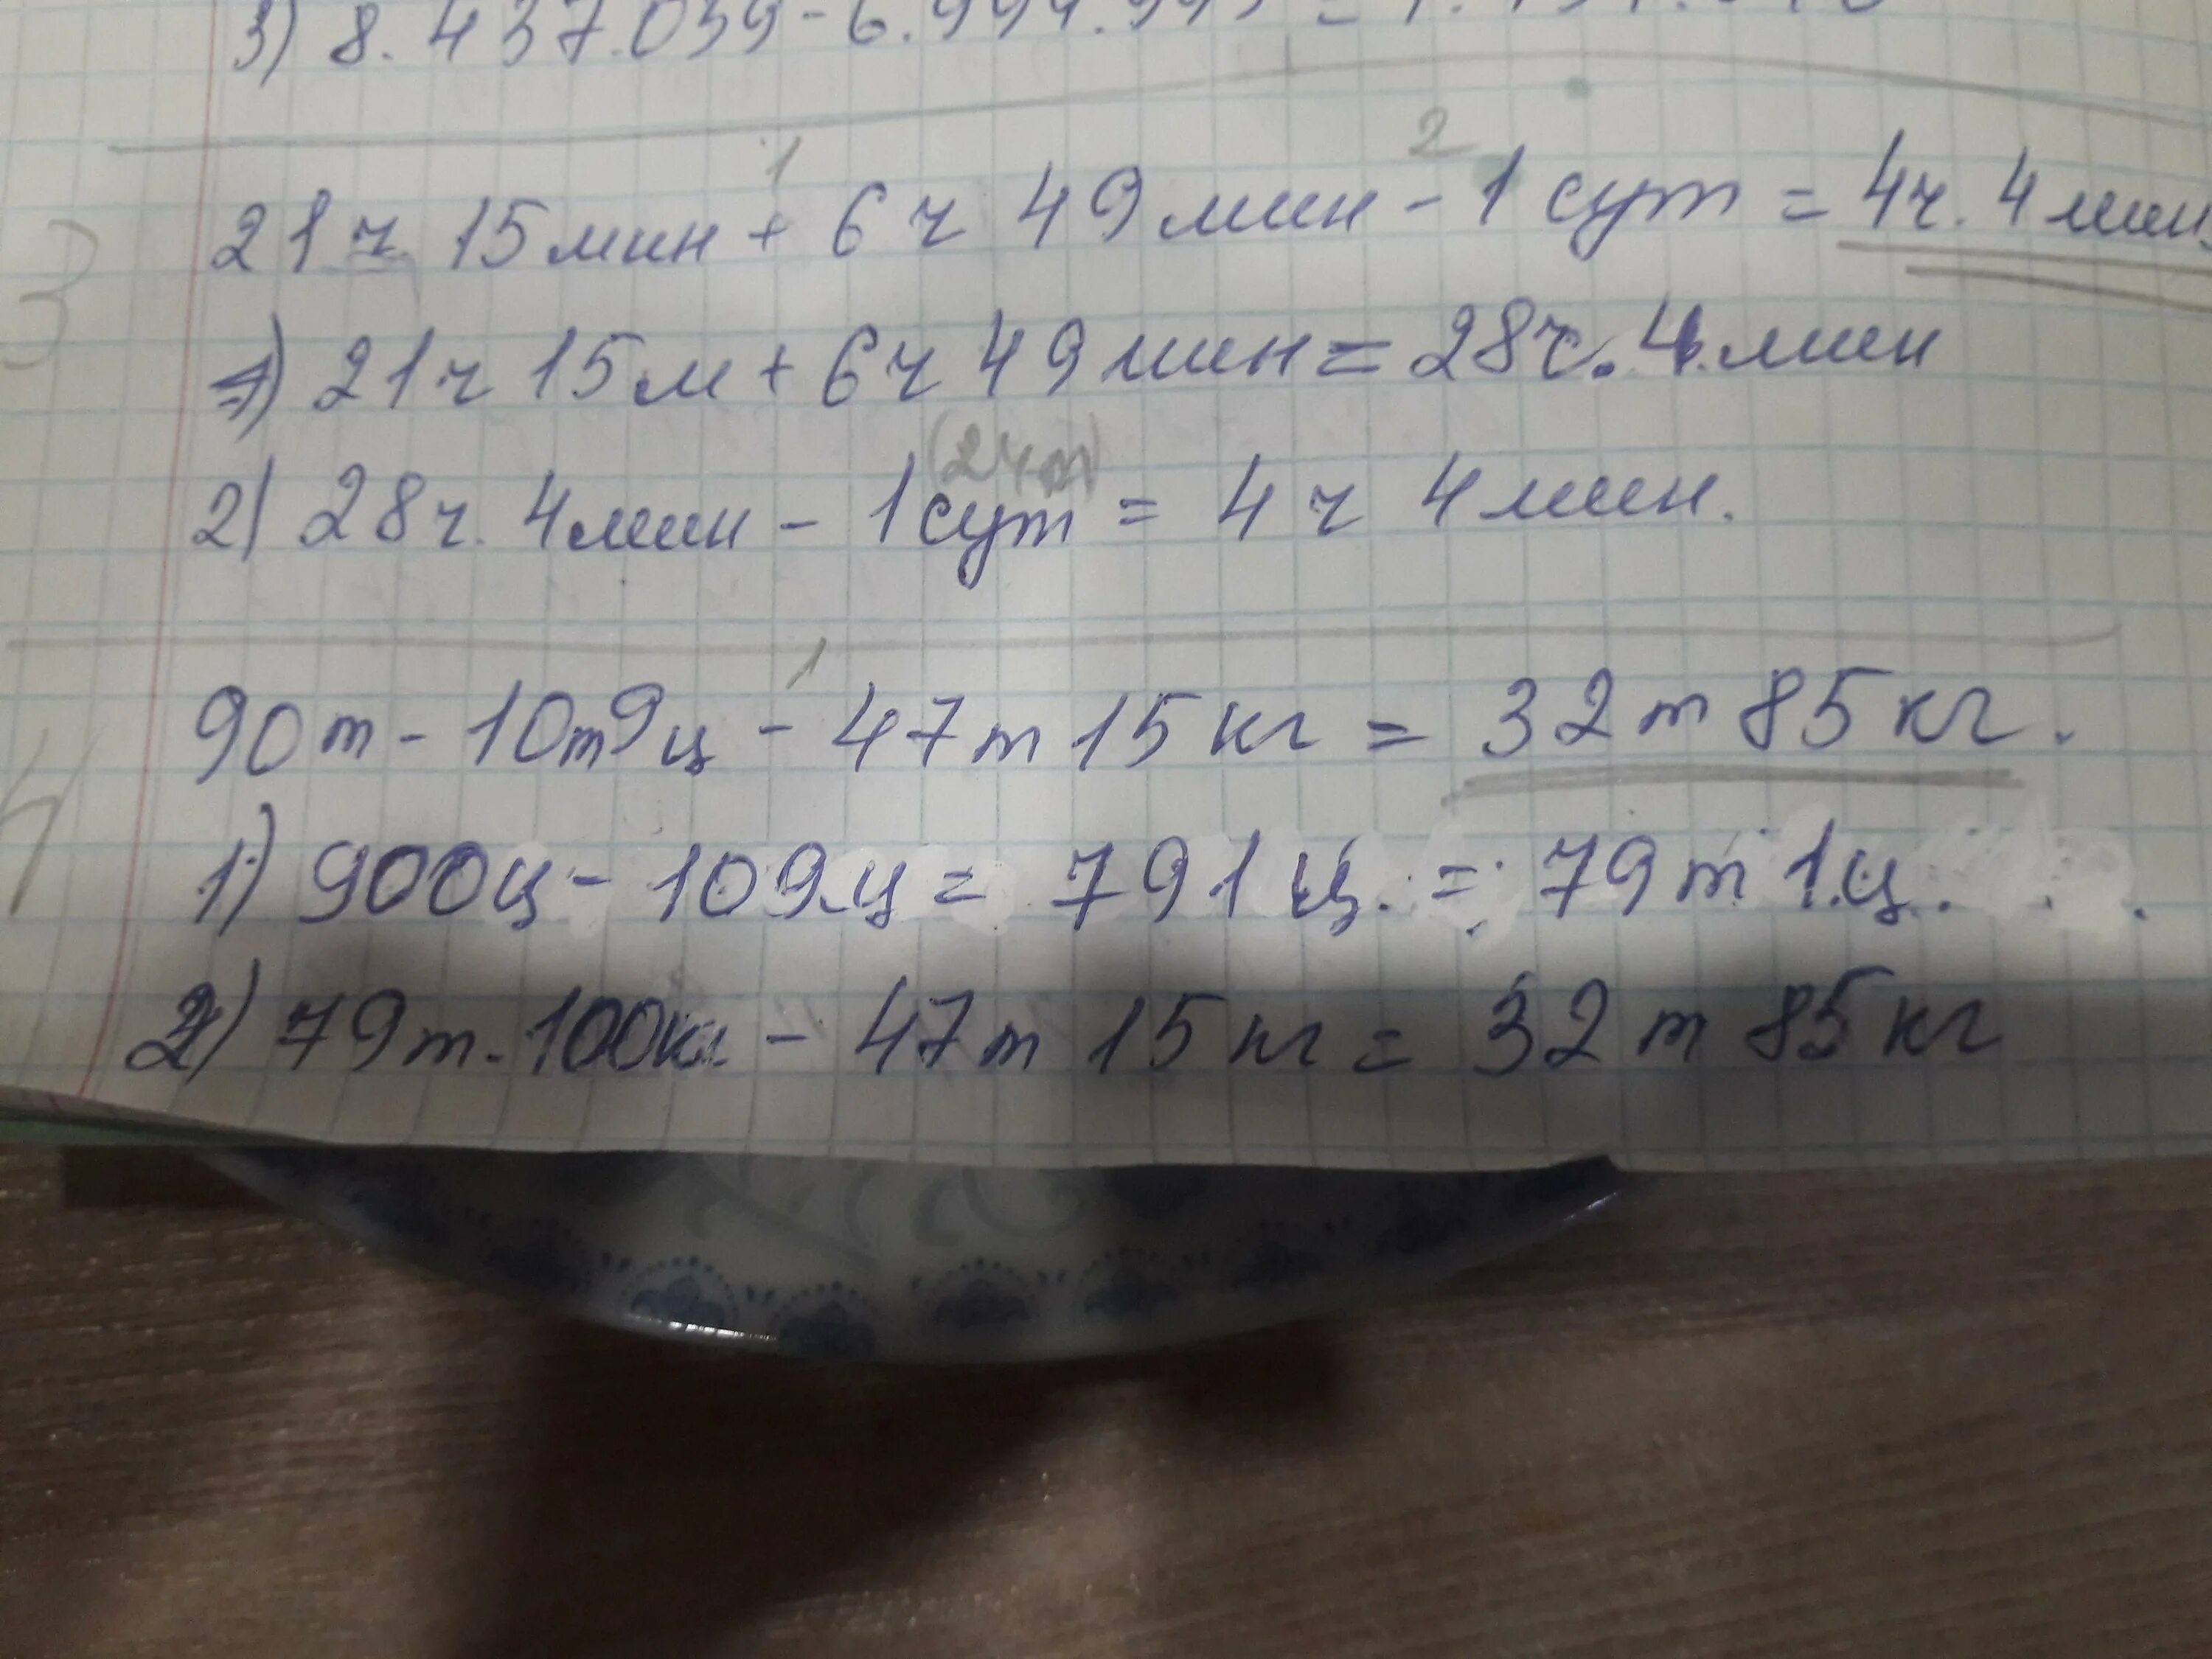 3) 8.437.039 - 6.994.993 =
1 2
3 21 ч 15 мин + 6 ч 49 мин - 1 сут = 4 ч. 4 мин.
1) 21 ч 15 м + 6 ч 49 мин = 28 ч. 4 мин
(24 ч)
2) 28 ч. 4 мин - 1 сут = 4 ч 4 мин.
1
4 90 т - 10 т 9 ц - 47 т 15 кг = 32 т 85 кг.
1) 900 ц - 109 ц = 791 ц. = 79 т 1 ц.
2) 79 т. 100 кг - 47 т 15 кг = 32 т 85 кг